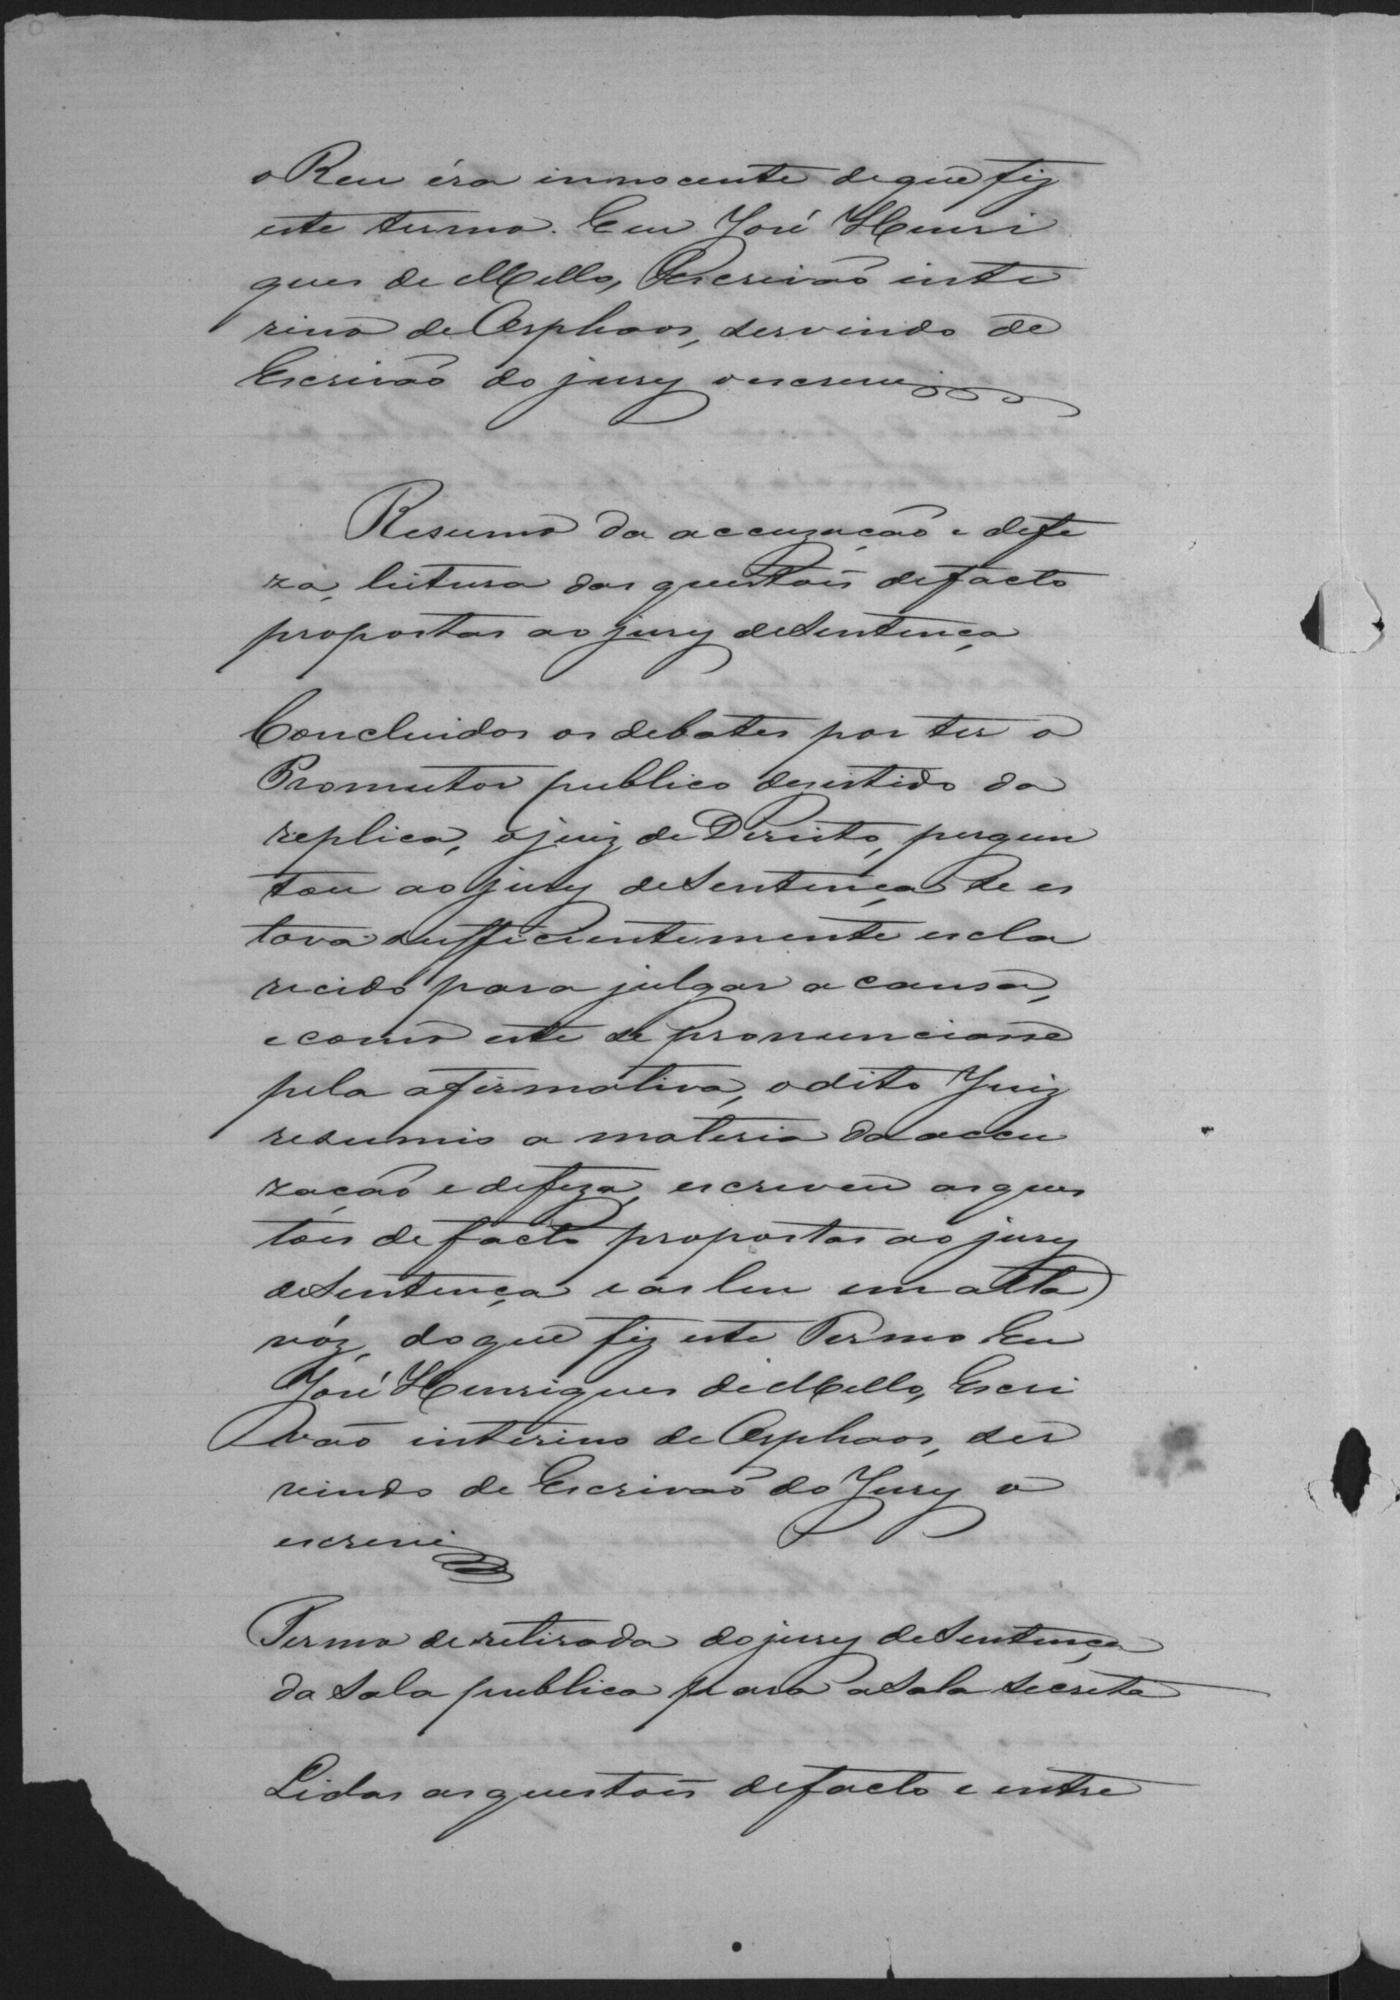 o Reu éra innocente de que fiz
este termo. Eu José Henri
ques de Mello, Escrivão inte
rino de Orphaos, servindo de
Escrivão do jury o escrevi
Resumo da accuzação e defe
za, leitura das questois de facto
propostas ao jury de Sentença
Concluidos os debates por ter o
Promutor publico desistido da
replica, o juiz de Dereito, pergun
tou ao jury de Sentença se es
tava sufficientemente escla
recido para julgar a causa,
e como este se pronunciasse
pela afirmativa, o dito Juiz
resumio a materia da accu
zação e defeza, escreveu as ques
tois de facto propostas ao jury
de Sentença e as leu em alta
vóz, do que fiz este Termo Eu
José Henriques de Mello, Escri
vão interino de Orphaos, ser
vindo de Escrivão do Jury o
escrevi
Termo de retirada do jury de Sentença
da Sala publica para a Sala secreta
Lidas as questois de facto e entre